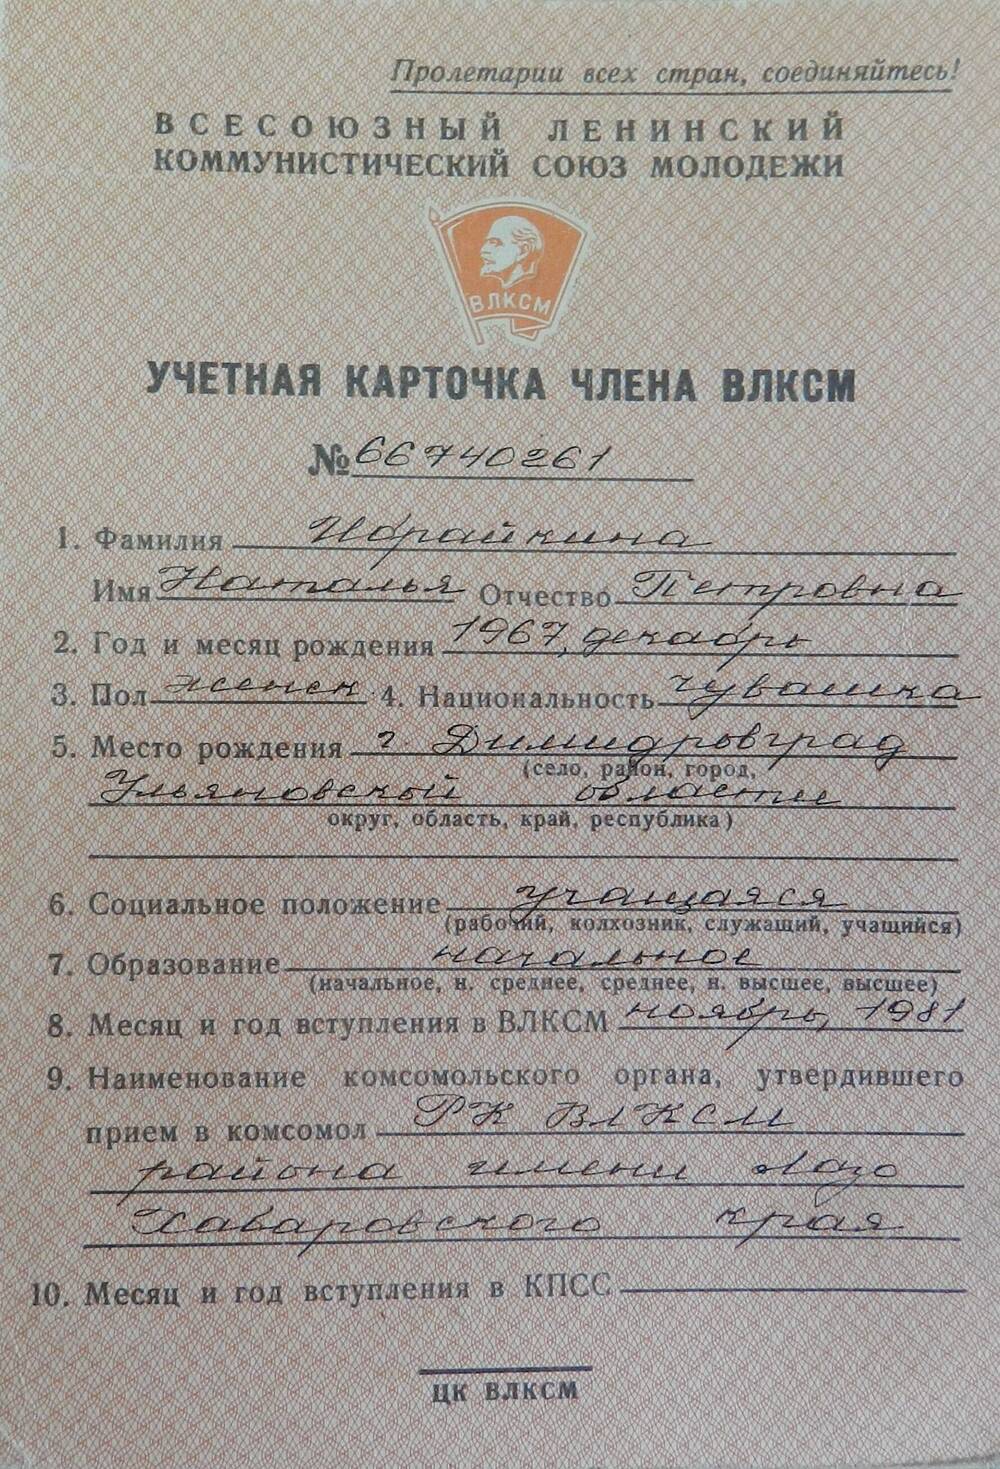 Пролетарии всех стран, соединяйтесь!
ВСЕСОЮЗНЫЙ ЛЕНИНСКИЙ
КОММУНИСТИЧЕСКИЙ СОЮЗ МОЛОДЕЖИ
ВЛКСМ
УЧЕТНАЯ КАРТОЧКА ЧЛЕНА ВЛКСМ
№ 66740261
1. Фамилия Ибрайкина
Имя Наталья Отчество Петровна
2. Год и месяц рождения 1967, декабрь
3. Пол женск. 4. Национальность чувашка
5. Место рождения г. Димидровград
(село, район, город,
Ульяновской области
округ, область, край, республика)
6. Социальное положение учащаяся
(рабочий, колхозник, служащий, учащийся)
7. Образование начальное
(начальное, н. среднее, среднее, н. высшее, высшее)
8. Месяц и год вступления в ВЛКСМ ноябрь, 1981
9. Наименование комсомольского органа, утвердившего
прием в комсомол РК ВЛКСМ
района имени Лазо
Хабаровского края
10. Месяц и год вступления в КПСС
ЦК ВЛКСМ